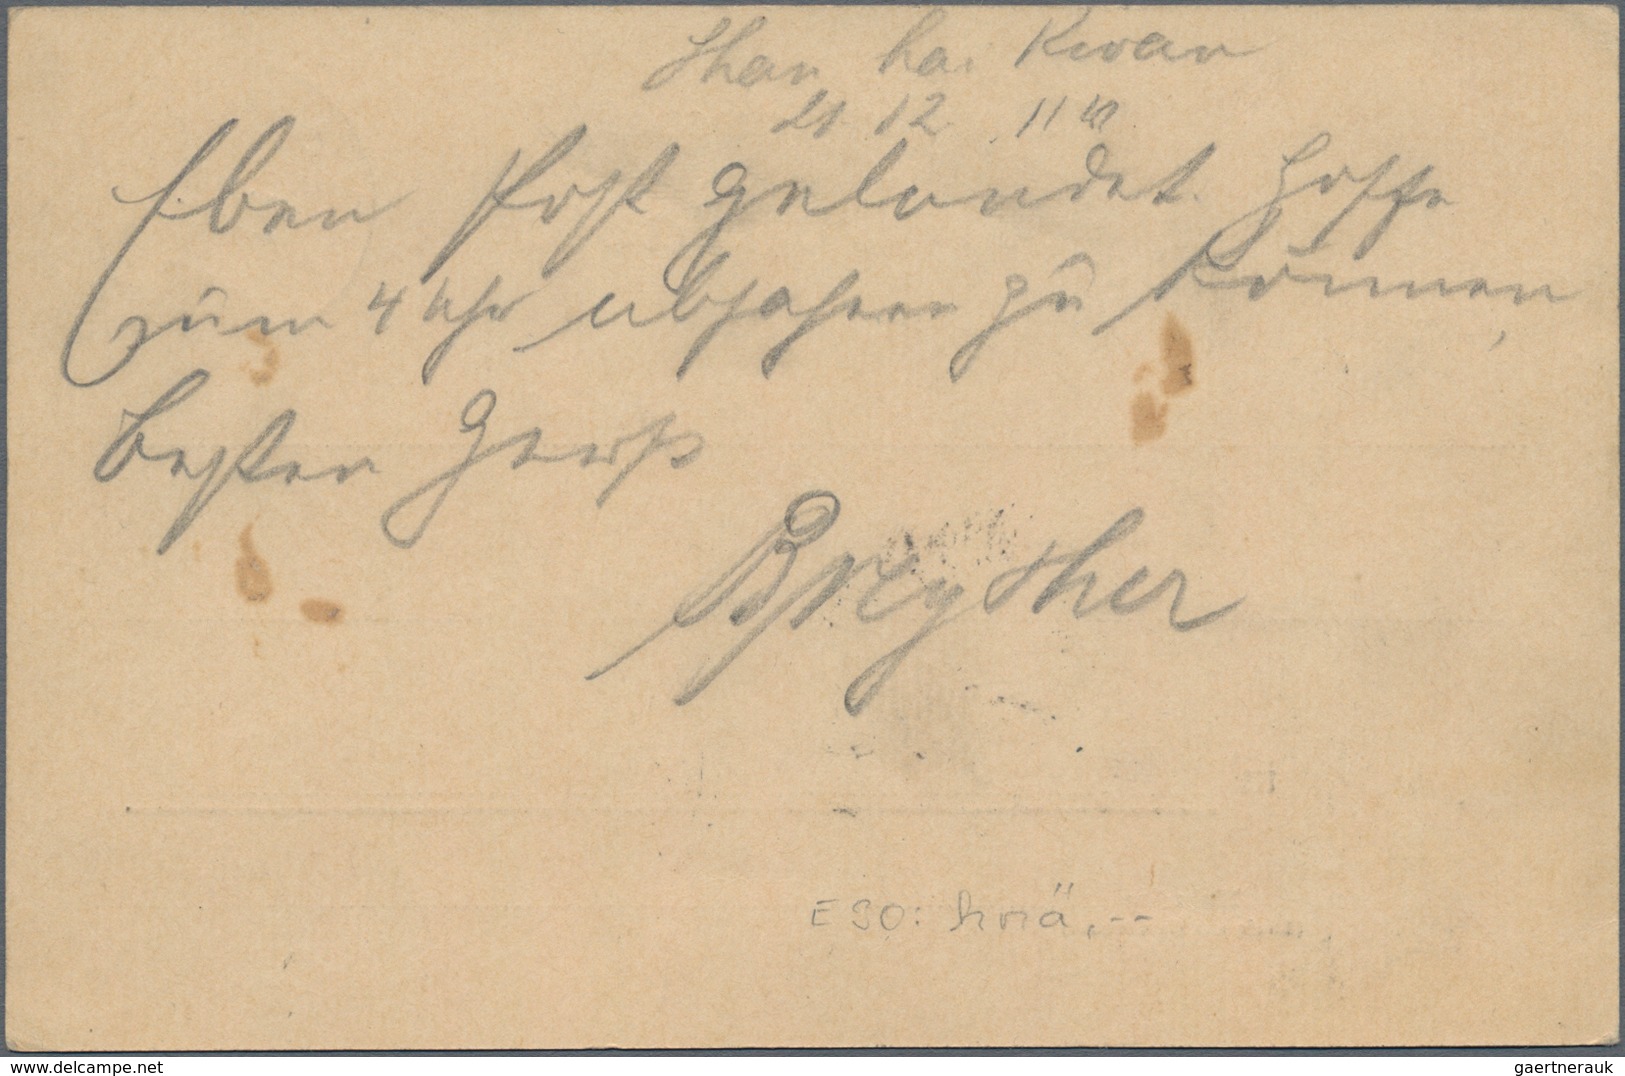 Shan ha. Kwan
21. 12. 11 15
Eben Post gelandet. Hoffe
zum 4 Uhr abfahren zu können,
besten Gruß
Breyther
E 90:
delcampe.net
gaertnerauk